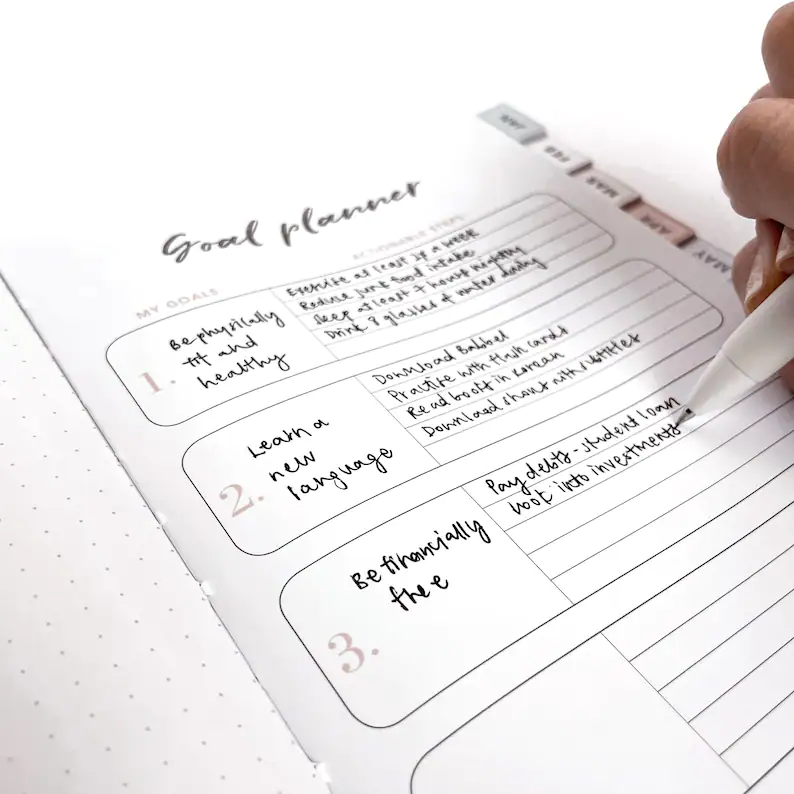 JAN
FEB
MAR
APR
MAY
Goal planner
MY GOALS
ACTIONABLE STEPS
1.
Be physically
fit and
healthy
Exercise at least 3x a week
Reduce junk food intake
Sleep at least 7 hours nightly
Drink 8 glasses of water daily
2.
Learn a
new
language
Download Babbel
Practice with flash cards
Read books in Korean
Download shows with subtitles
3.
Be financially
free
Pay debts - student loan
Look into investments